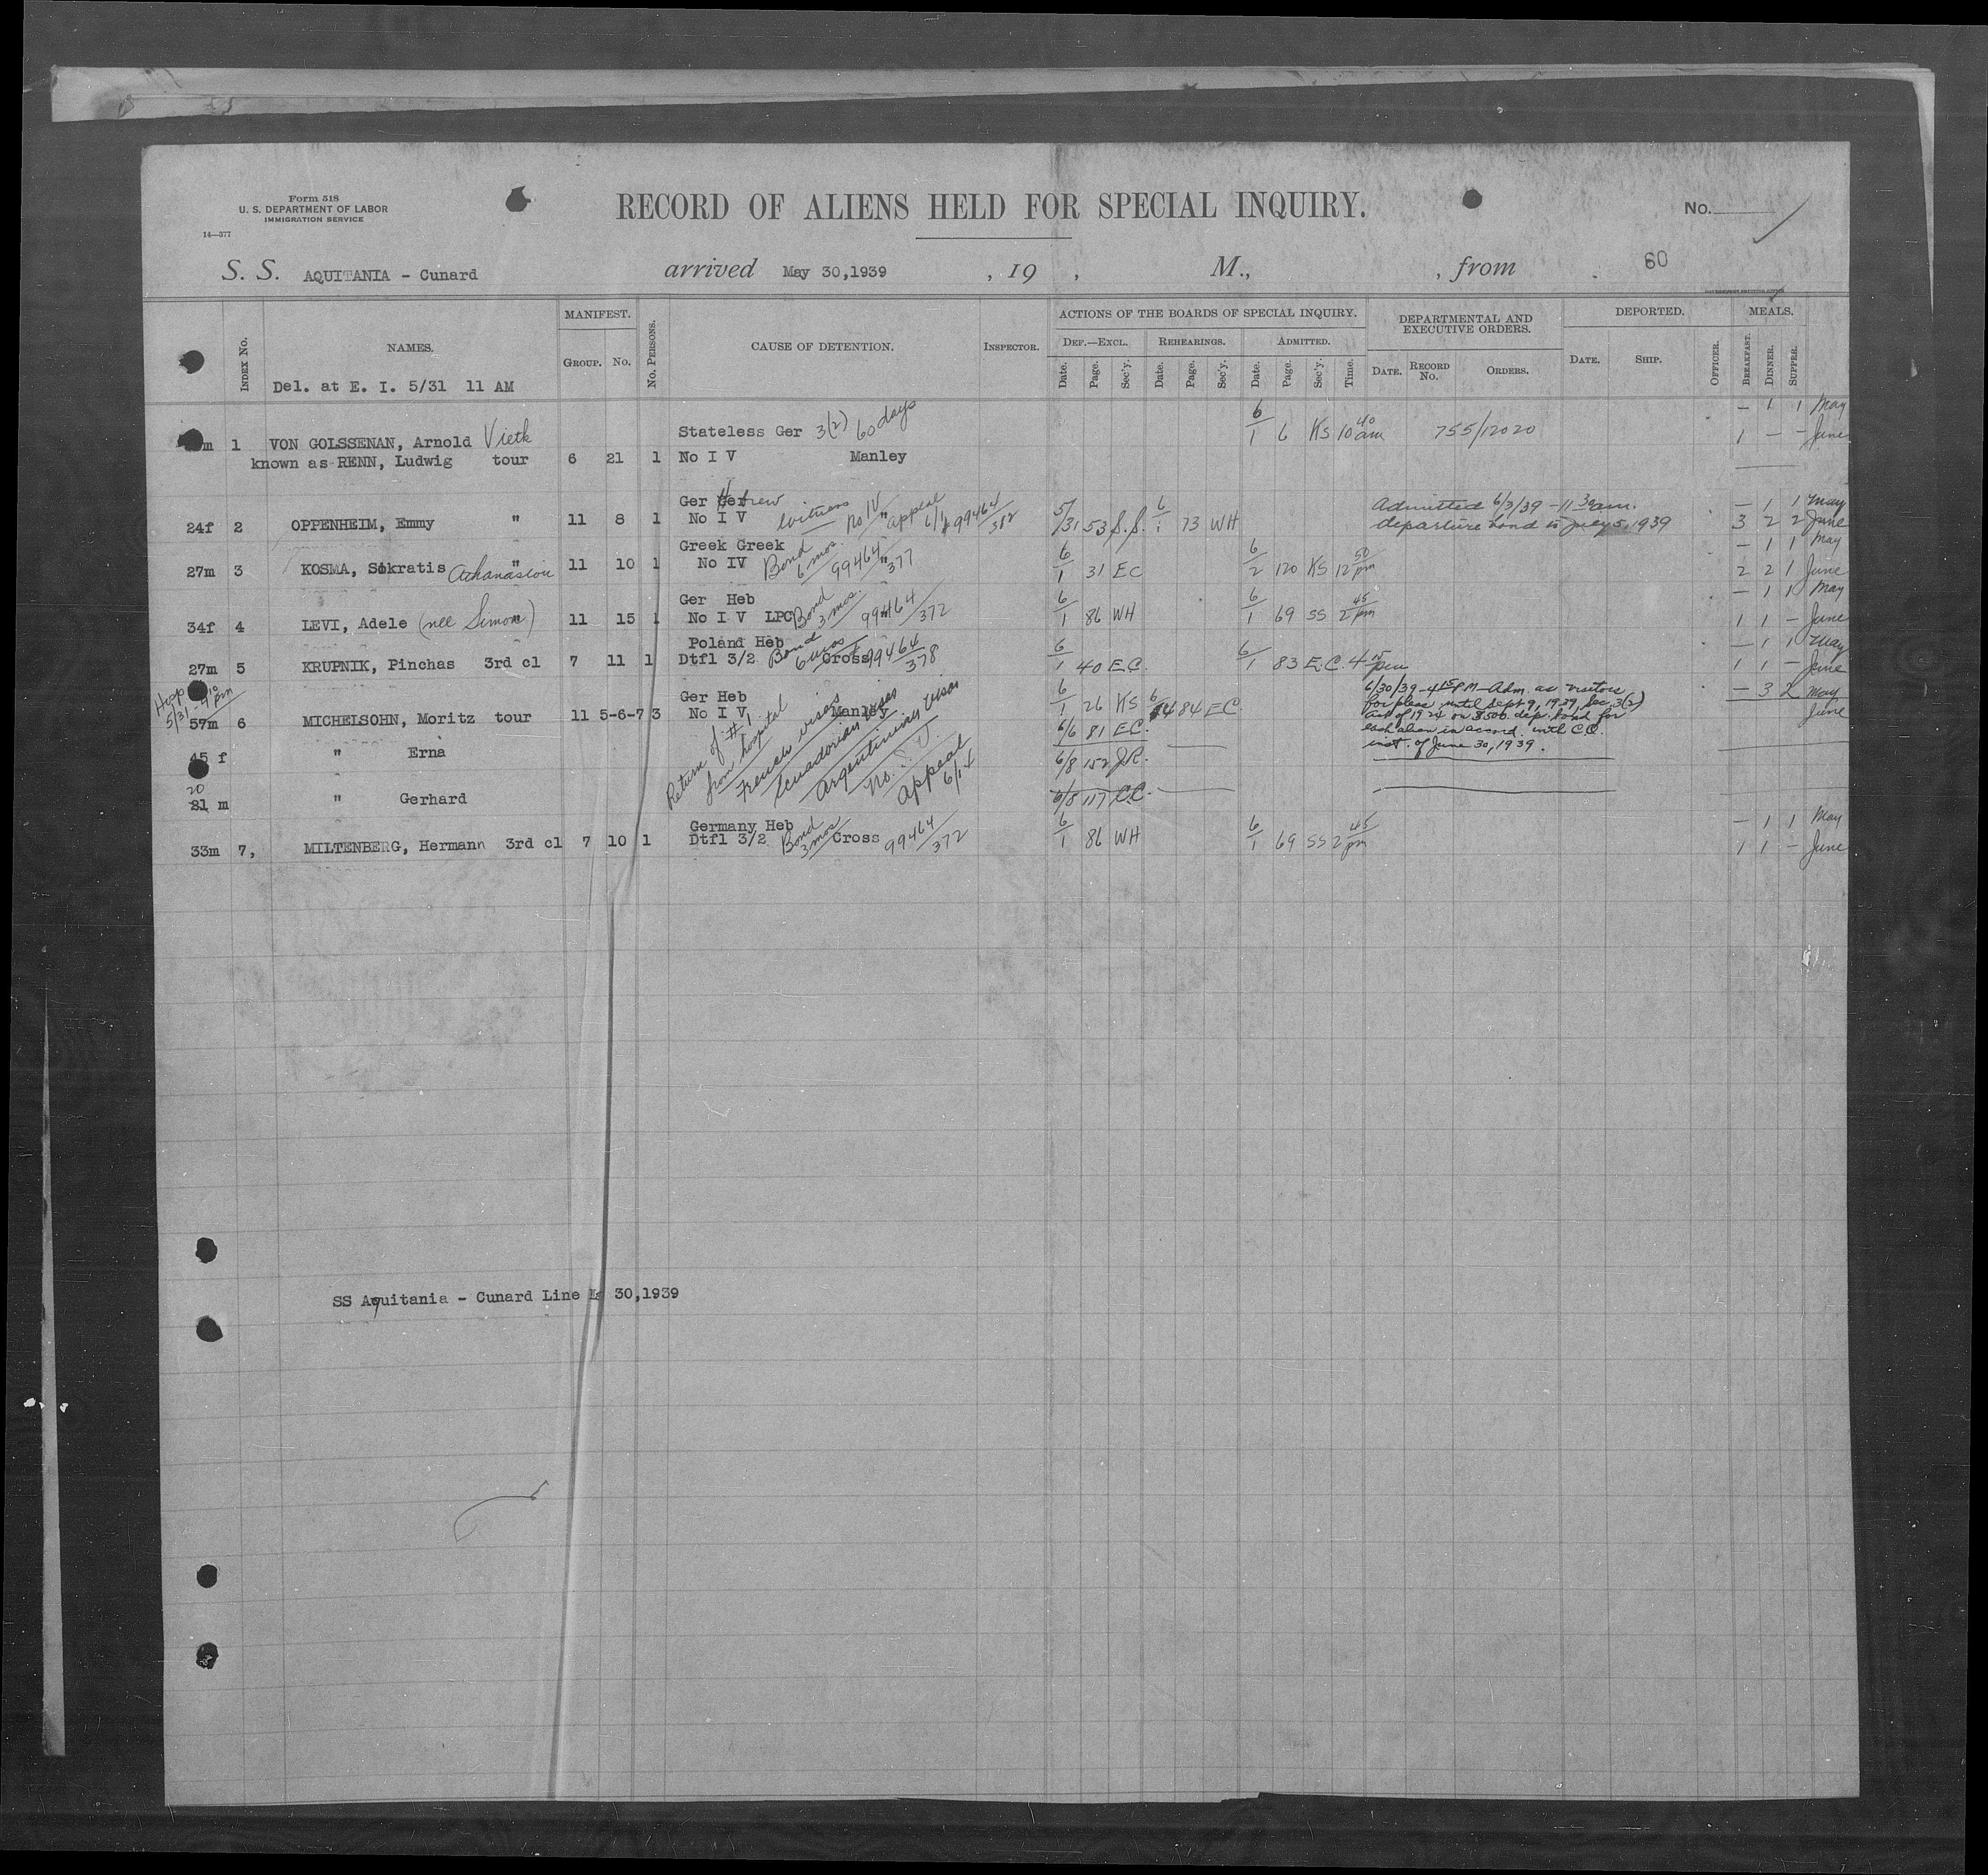 Form 518
U. S. DEPARTMENT OF LABOR
IMMIGRATION SERVICE
14—377
RECORD OF ALIENS HELD FOR SPECIAL INQUIRY.
No.
S. S. AQUITANIA - Cunard arrived May 30,1939 , 19 , M., , from 60
INDEX No. NAMES. MANIFEST. GROUP. No. No. PERSONS. CAUSE OF DETENTION. INSPECTOR. ACTIONS OF THE BOARDS OF SPECIAL INQUIRY. DEF.—EXCL. Date. Page. Sec'y. REHEARINGS. Date. Page. Sec'y. ADMITTED. Date. Page. Sec'y. Time. DEPARTMENTAL AND EXECUTIVE ORDERS. DATE. RECORD No. ORDERS. DEPORTED. DATE. SHIP. OFFICER. MEALS. BREAKFAST. DINNER. SUPPER.
Del. at E. I. 5/31 11 AM
m 1 VON GOLSSENAN, Arnold Vieth Stateless Ger 3(2) 60 days 6/1 6 KS 10 40 am 755/12020 — 1 1 May
known as RENN, Ludwig tour 6 21 1 No I V Manley 1 — — June
Ger Ger Hebrew
24f 2 OPPENHEIM, Emmy " 11 8 1 No I V Witness No IV " appeal 6/1 99464/382 5/31 53 S.S. 6/1 73 WH Admitted 6/3/39 - 11 30 am. — 1 1 May
departure bond to July 5, 1939 3 2 2 June
Greek Greek
27m 3 KOSMA, Sokratis Athanasiou " 11 10 1 No IV Bond 6 mos. 99464/377 " 6/1 31 EC 6/2 120 KS 12 50 pm — 1 1 May
2 2 1 June
Ger Heb
34f 4 LEVI, Adele (nee Simon) " 11 15 1 No I V LPC Bond 3 mos. 99464/372 6/1 86 WH 6/1 69 SS 2 45 pm — 1 1 May
1 1 — June
Poland Heb
27m 5 KRUPNIK, Pinchas 3rd cl 7 11 1 Dtfl 3/2 Bond 6 mos Cross 99464/378 6/1 40 E.C. 6/1 83 E.C. 4 15 pm — 1 1 May
1 1 — June
Hosp 5/31 - 4 10 pm
Ger Heb
57m 6 MICHELSOHN, Moritz tour 11 5-6-7 3 No I V Manley 6/1 26 KS 6/14 84 E.C. — 3 2 May
June
6/30/39 - 4 15 PM - Adm. as visitors
for pleas. until Sept 9, 1939, Sec. 3(2)
act of 1924 on $500 dep. bond for
each alien in accord. with C.O.
inst. of June 30, 1939.
45 f " Erna 6/6 81 E.C.
6/8 152 J.R.
20
21 m " Gerhard 6/8 117 C.C.
Return of #1
from hospital
French visas
Ecuadorian visas
Argentinian visas
No. I V
Appeal
6/14
Germany Heb
33m 7, MILTENBERG, Hermann 3rd cl 7 10 1 Dtfl 3/2 Bond 3 mos Cross 99464/372 6/1 86 WH 6/1 69 SS 2 45 pm — 1 1 May
1 1 — June
SS Aquitania - Cunard Line 30,1939